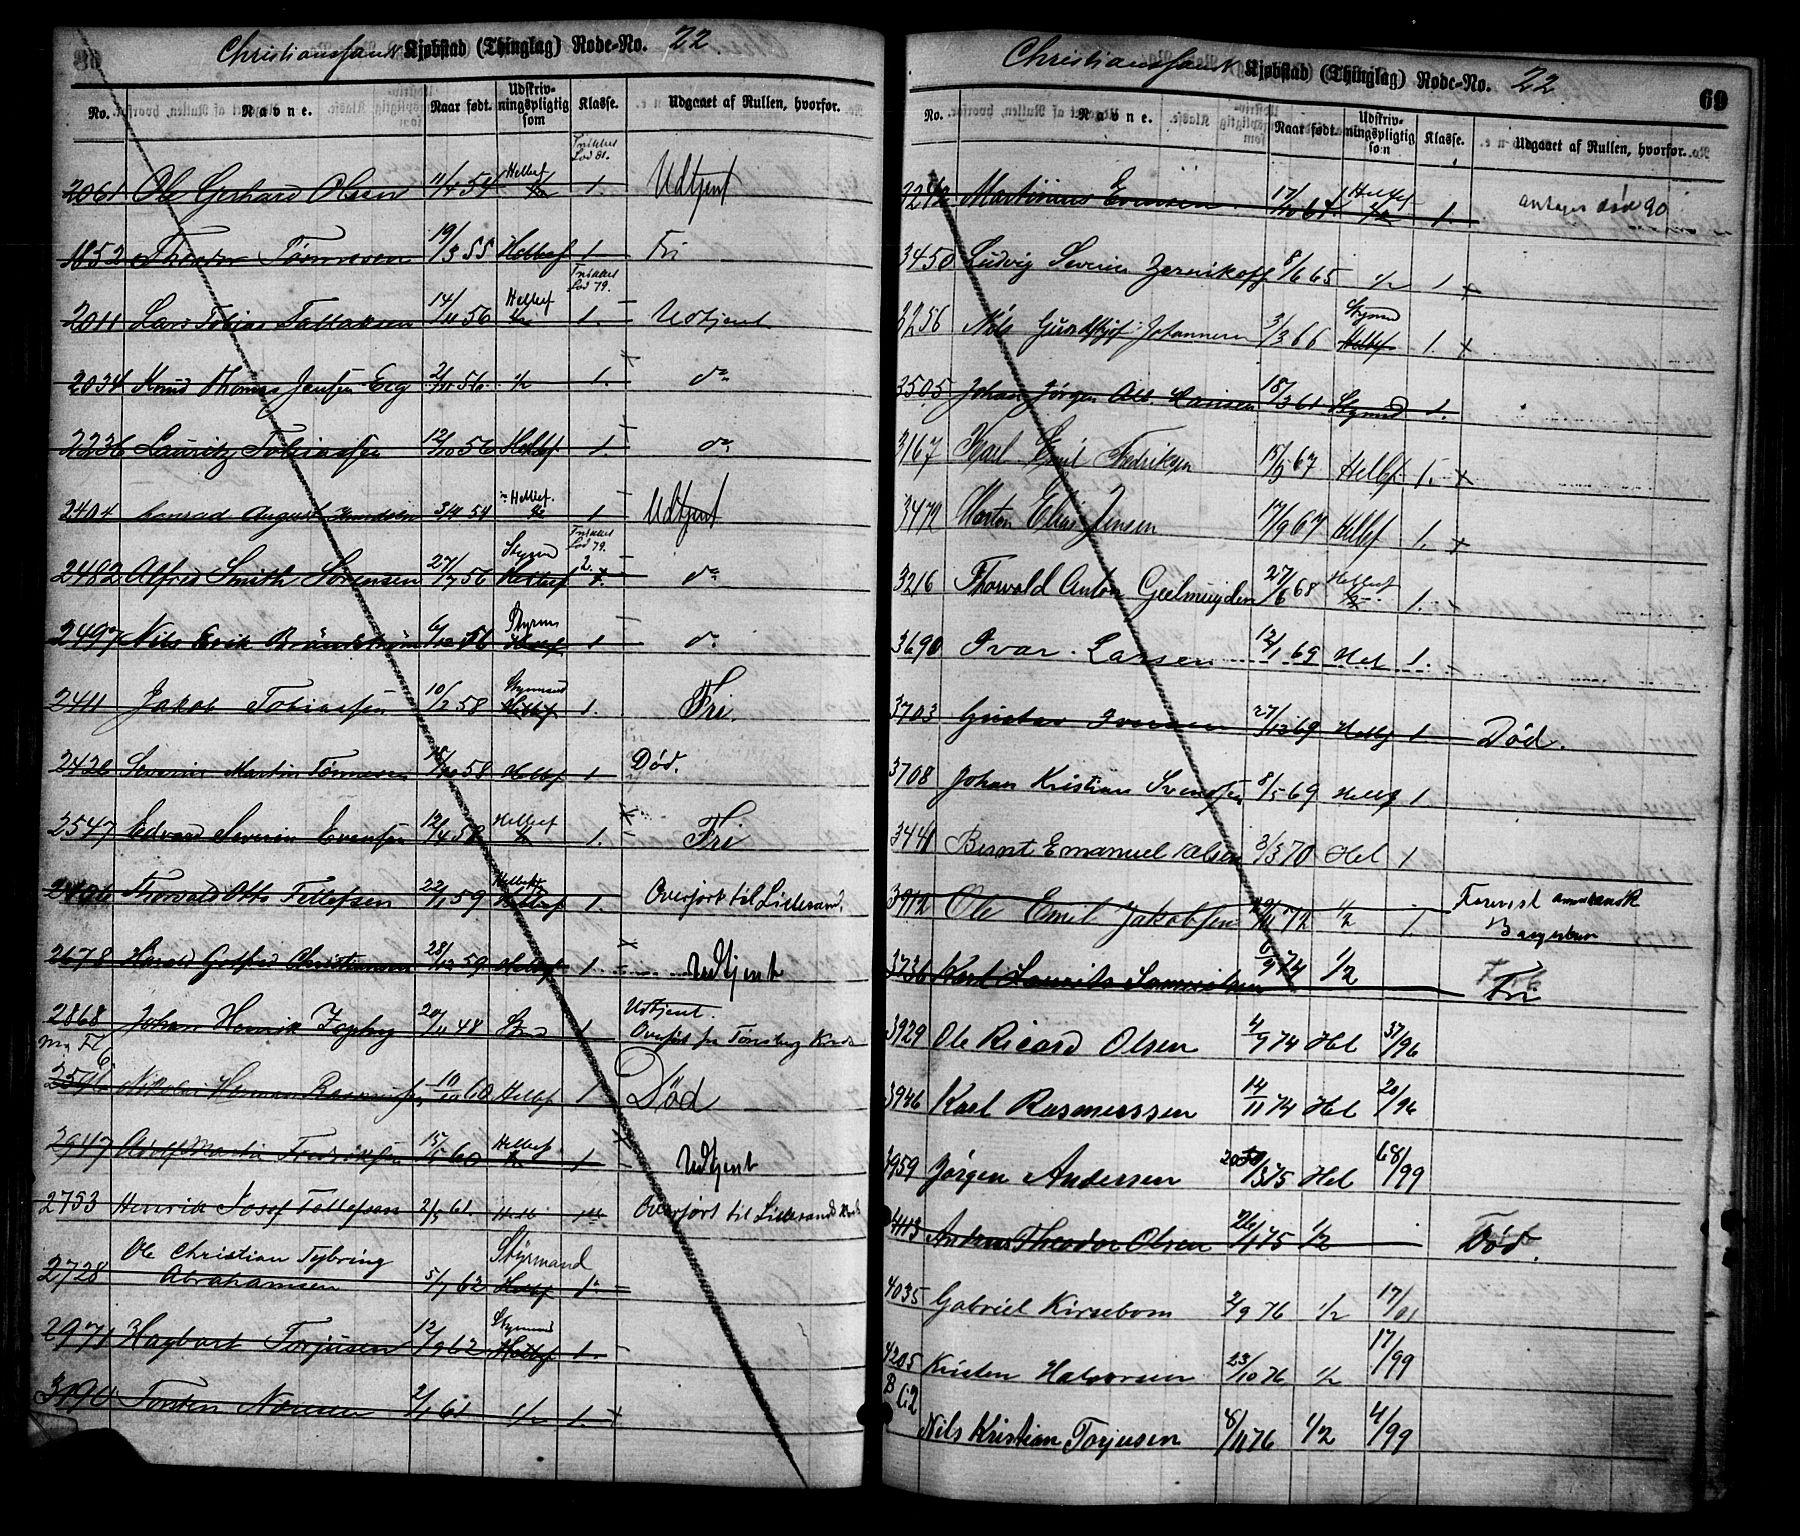 Christianssand Kjøbstad (Thinglag) Rode-No. 22
No. Navne. Naar født. Udskriv-ningspligtig som Klasse. Udgaaet af Rullen, hvorfor.
Frikket Lod 81.
2061 Ole Gerhard Olsen 11/4 54 Helbef 1/2 1. Udtjent
1852 Theodor Tönnesen 19/3 55 Helbef 1 Fri
Frikket Lod 79.
2011 Lars Tobias Tallaksen 14/11 56 Helbef 1. Udtjent
2034 Knud Thomas Jensen Eeg 2/10 56 1/2 1. do
2236 Lauritz Tobiassen 12/10 56 Helbef 1. do
2404 Conrad August Knudsen 3/4 54 Helbef. 1/2 1 Udtjent
Frikket Lod 79.
2482 Alfred Smith Sørensen 27/7 56 Styrm Helbef 2. 1. do
2497 Nils Erik Brändström 6/12 56 Styrm Helbef 1 do
2411 Jakob Tobiassen 10/2 58 Styrmand Helbef 1. Fri.
2426 Severin Martin Tönnesen 18/10 58 Helbef 1 Død.
2547 Edvard Severin Evensen 12/4 58 Helbef 1/2 1. Fri
Thorvald Otto Tellefsen 22/1 59 Helbef 1. Overført til Lillesand.
2678 Harald Gotfred Christiansen 28/12 59 Helbef 1. Udtjent
2868 Johan Henrik 20/11 48 1 Udtjent. Overført fra Tønsberg Kreds
Nikolai Herman Rasmussen 10/10 60 Helbef 1 Død
2947 Adolf Martin Fredriksen 15/5 60 Helbef 1/2 1 Udtjent
2753 Henrik Josef Tellefsen 2/5 61. Helb Overført til Lillesands Kreds
2728 Ole Christian Tybring Abrahamsen 5/1 62 Styrmand Helbf 1.
2971 Hagbart Torjusen 12/9 62 Styrmand Helbef 1.
3190 Torsten 2/1 61 1/2 1. +
Christianssand Kjøbstad (Thinglag) Rode-No. 22
69
No. Navne. Naar født. Udskriv-ningspligtig som Klasse. Udgaaet af Rullen, hvorfor.
Martinius Evensen 17/10 61 Helbef 1/2 1. antages død 90
3450 Ludvig Severin Zernikoff 8/6 65 1/2 1 +
3256 Nils Gundthjof Johannesen 3/3 66 Styrmd Helbef 1. +
3505 Johan Jørgen Alb. Hansen 18/3 61 Styrmd 1.
3167 Karl Emil Fredriksen 15/5 67 Helbf 1. +
3472 Morten Elias Jensen 17/9 67 Helbf 1. +
3216 Thorvald Anton Geelmuyden 27/6 68 Helbef 1/2 1.
3690 Ivar Larsen 12/1 69 Hel 1.
3703 Gustav Iversen 27/12 69 Helbf 1 Død.
3708 Johan Kristian Svendsen 8/5 69 Helbf 1
3441 Bernt Emanuel Olsen 3/3 70 Hel 1
3912 Ole Emil Jakobsen 29/10 72 1/2 1. Forevist amerikansk Borgerbrev
3736 Karl Laurits Samuelsen 6/9 74 1/2 Fri
3929 Ole Ricard Olsen 4/9 74 Hel 37/96
3946 Karl Rasmussen 14/11 74 Hel 20/96
3959 Jørgen Andersen 20/3 75 Hel 68/99
4113 Andreas Theodor Olsen 26/1 75 1/2 Død.
4035 Gabriel Kirsebom 2/9 76 1/2 17/01
4205 Kristen Halvorsen 23/10 76 1/2 17/99
B 62 Nils Kristian Torjusen 8/11 76 1/2 4/99